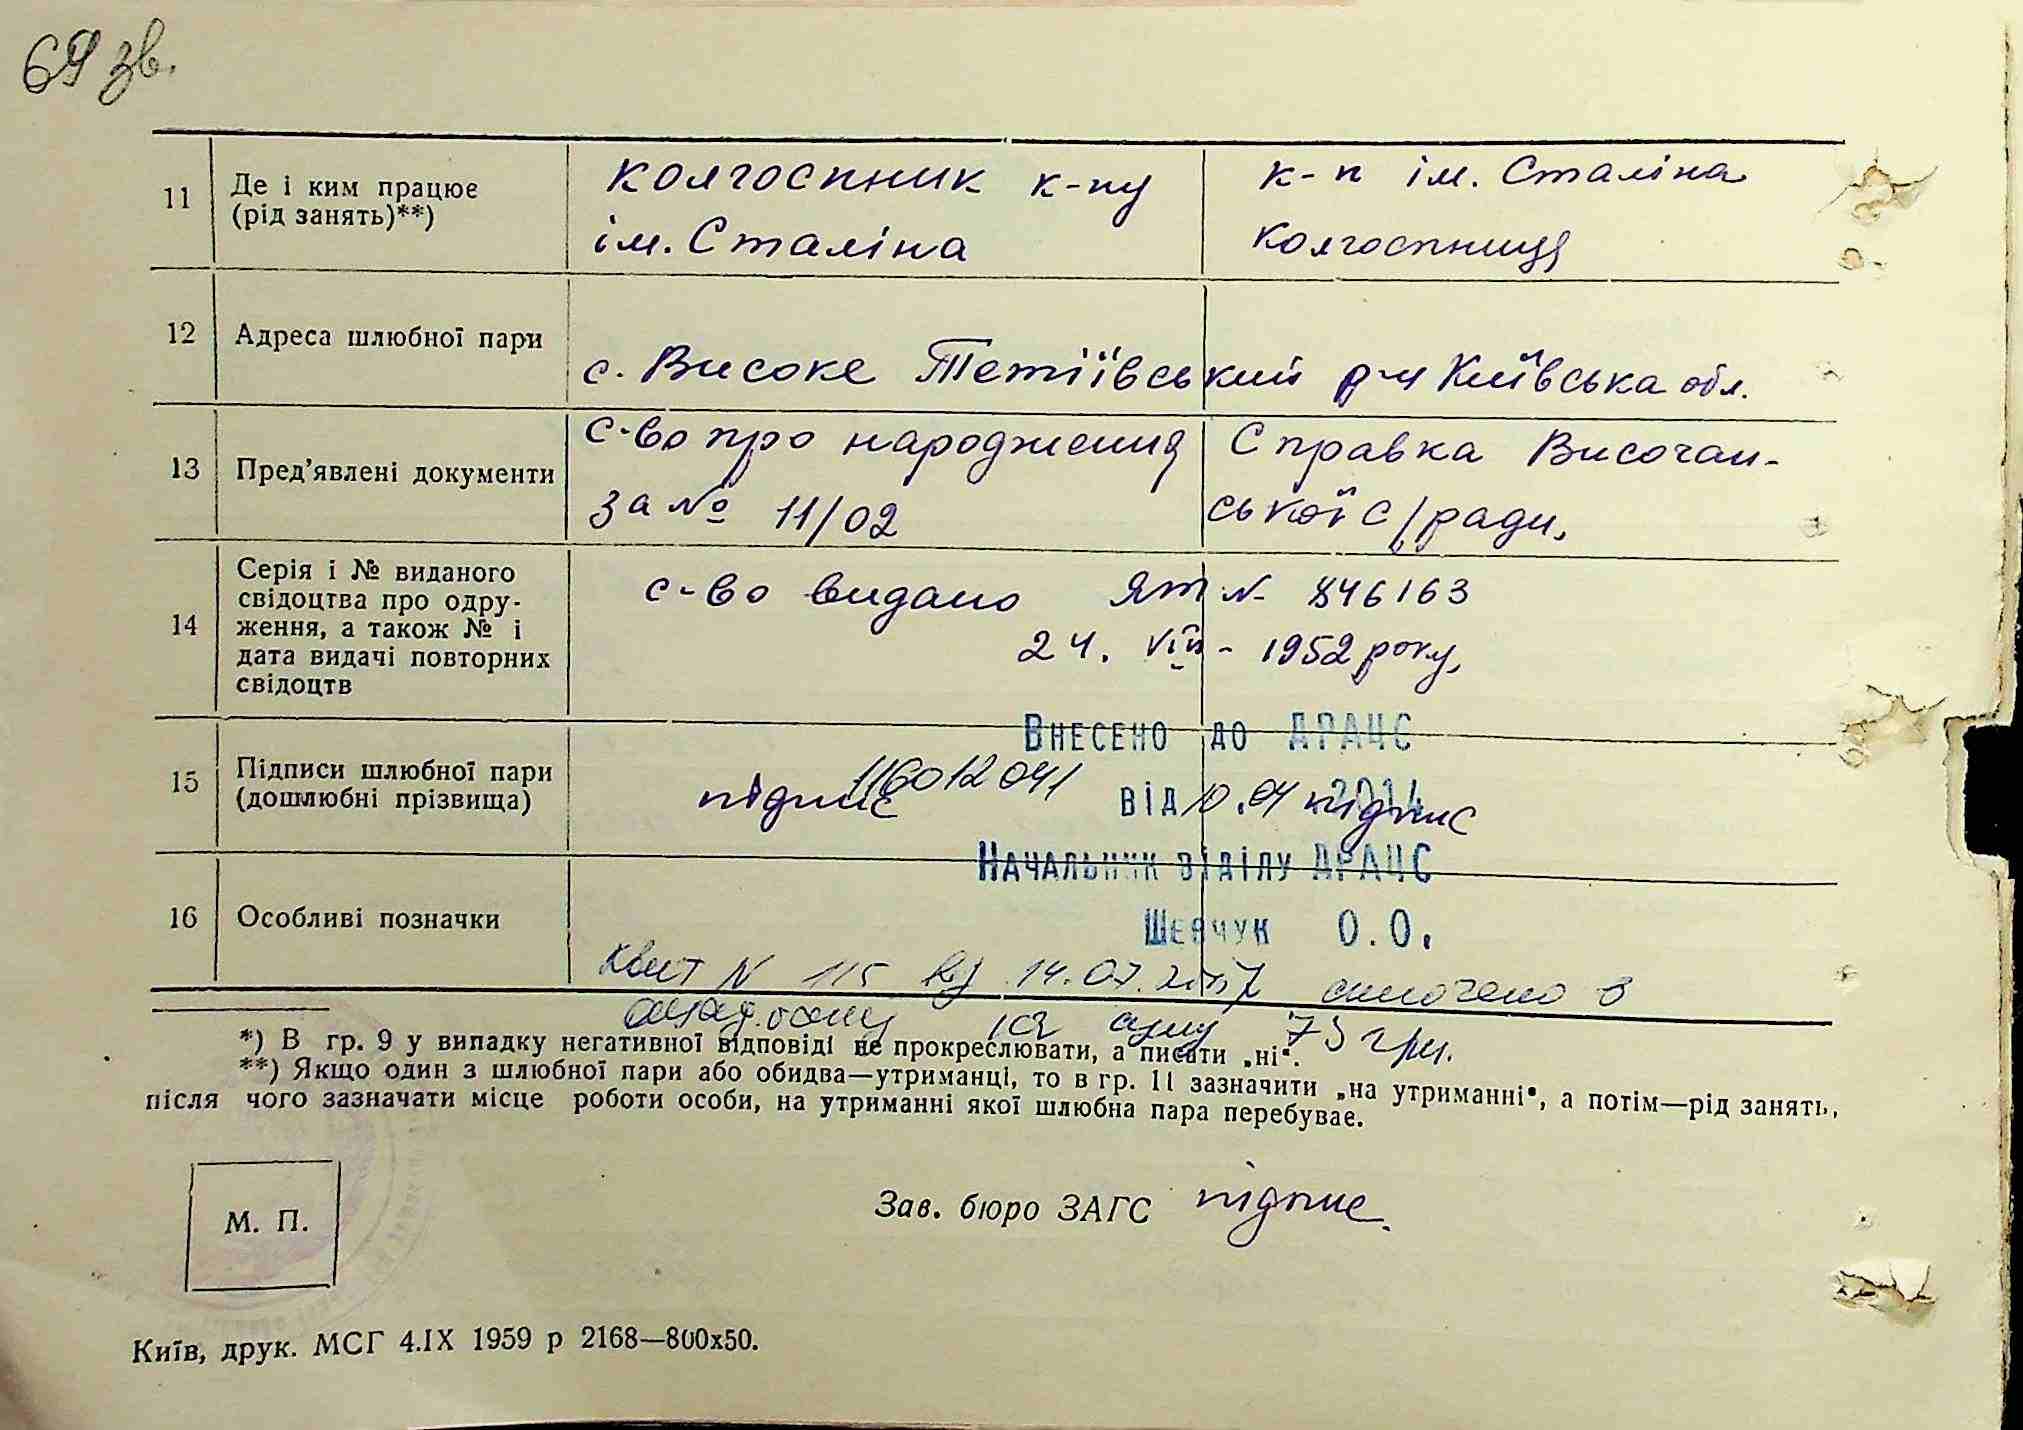 69 зв.
11 Де і ким працює колгоспник к-пу к-п ім. Сталіна
(рід занять)**) ім. Сталіна колгоспниця
12 Адреса шлюбної пари с. Високе Тетіївський р-н Київська обл.
13 Пред'явлені документи с-во про народження Справка Височан-
за № 11/02 ської с/ради,
14 Серія і № виданого
свідоцтва про одру-
ження, а також № і
дата видачі повторних
свідоцтв
с-во видано ЯТ № 846163
24. VIII - 1952 року,
Внесено до ДРАЦС
15 Підписи шлюбної пари
(дошлюбні прізвища)
підпис 116012041 від 10.04 2014 підпис
Начальник відділу ДРАЦС
16 Особливі позначки
Шевчук О.О.
Квит N 115 від 14.07.2017 сплочено в
на суму 73 грн.
*) В гр. 9 у випадку негативної відповіді не прокреслювати, а писати „ні“.
**) Якщо один з шлюбної пари або обидва—утриманці, то в гр. 11 зазначити „на утриманні“, а потім—рід занять,
після чого зазначати місце роботи особи, на утриманні якої шлюбна пара перебуває.
М. П.
Зав. бюро ЗАГС підпис.
Київ, друк. МСГ 4.IX 1959 р 2168—800х50.